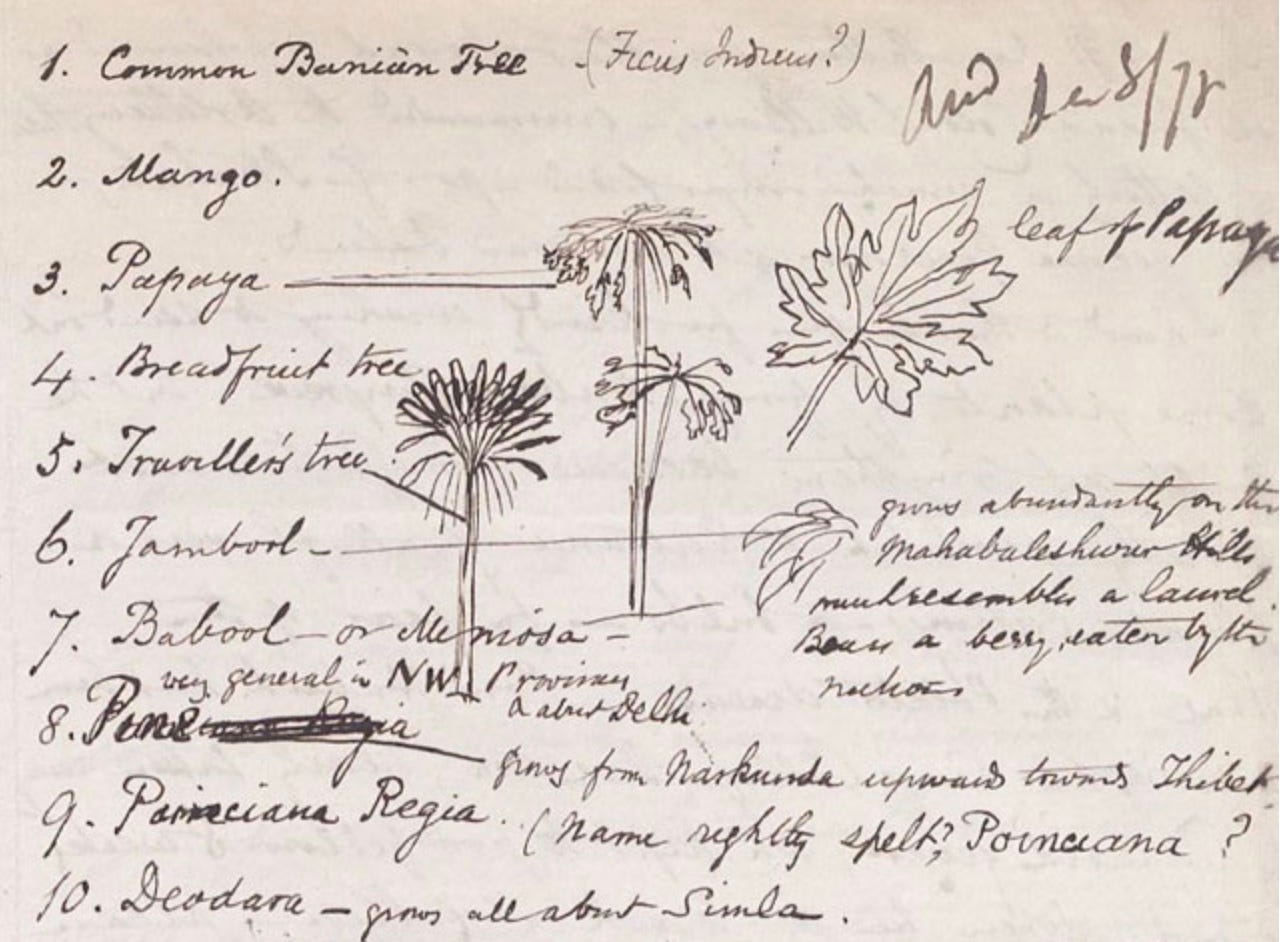 1. Common Banian Tree (Ficus Indicus?)
Recd Dec 8/78
2. Mango.
leaf of Papaya
3. Papaya
4. Breadfruit tree
5. Traveller's tree
6. Jambool -
grows abundantly on the
Mahabaleshwur Hills
much resembles a laurel.
Bears a berry, eaten by the
natives
7. Babool - or Mimosa -
very general in NW Provinces
& about Delhi
8. Pine
grows from Narkunda upwards towards Thibet
9. Poinciana Regia. (Name rightly spelt? Poinciana ?
10. Deodara - grows all about Simla.